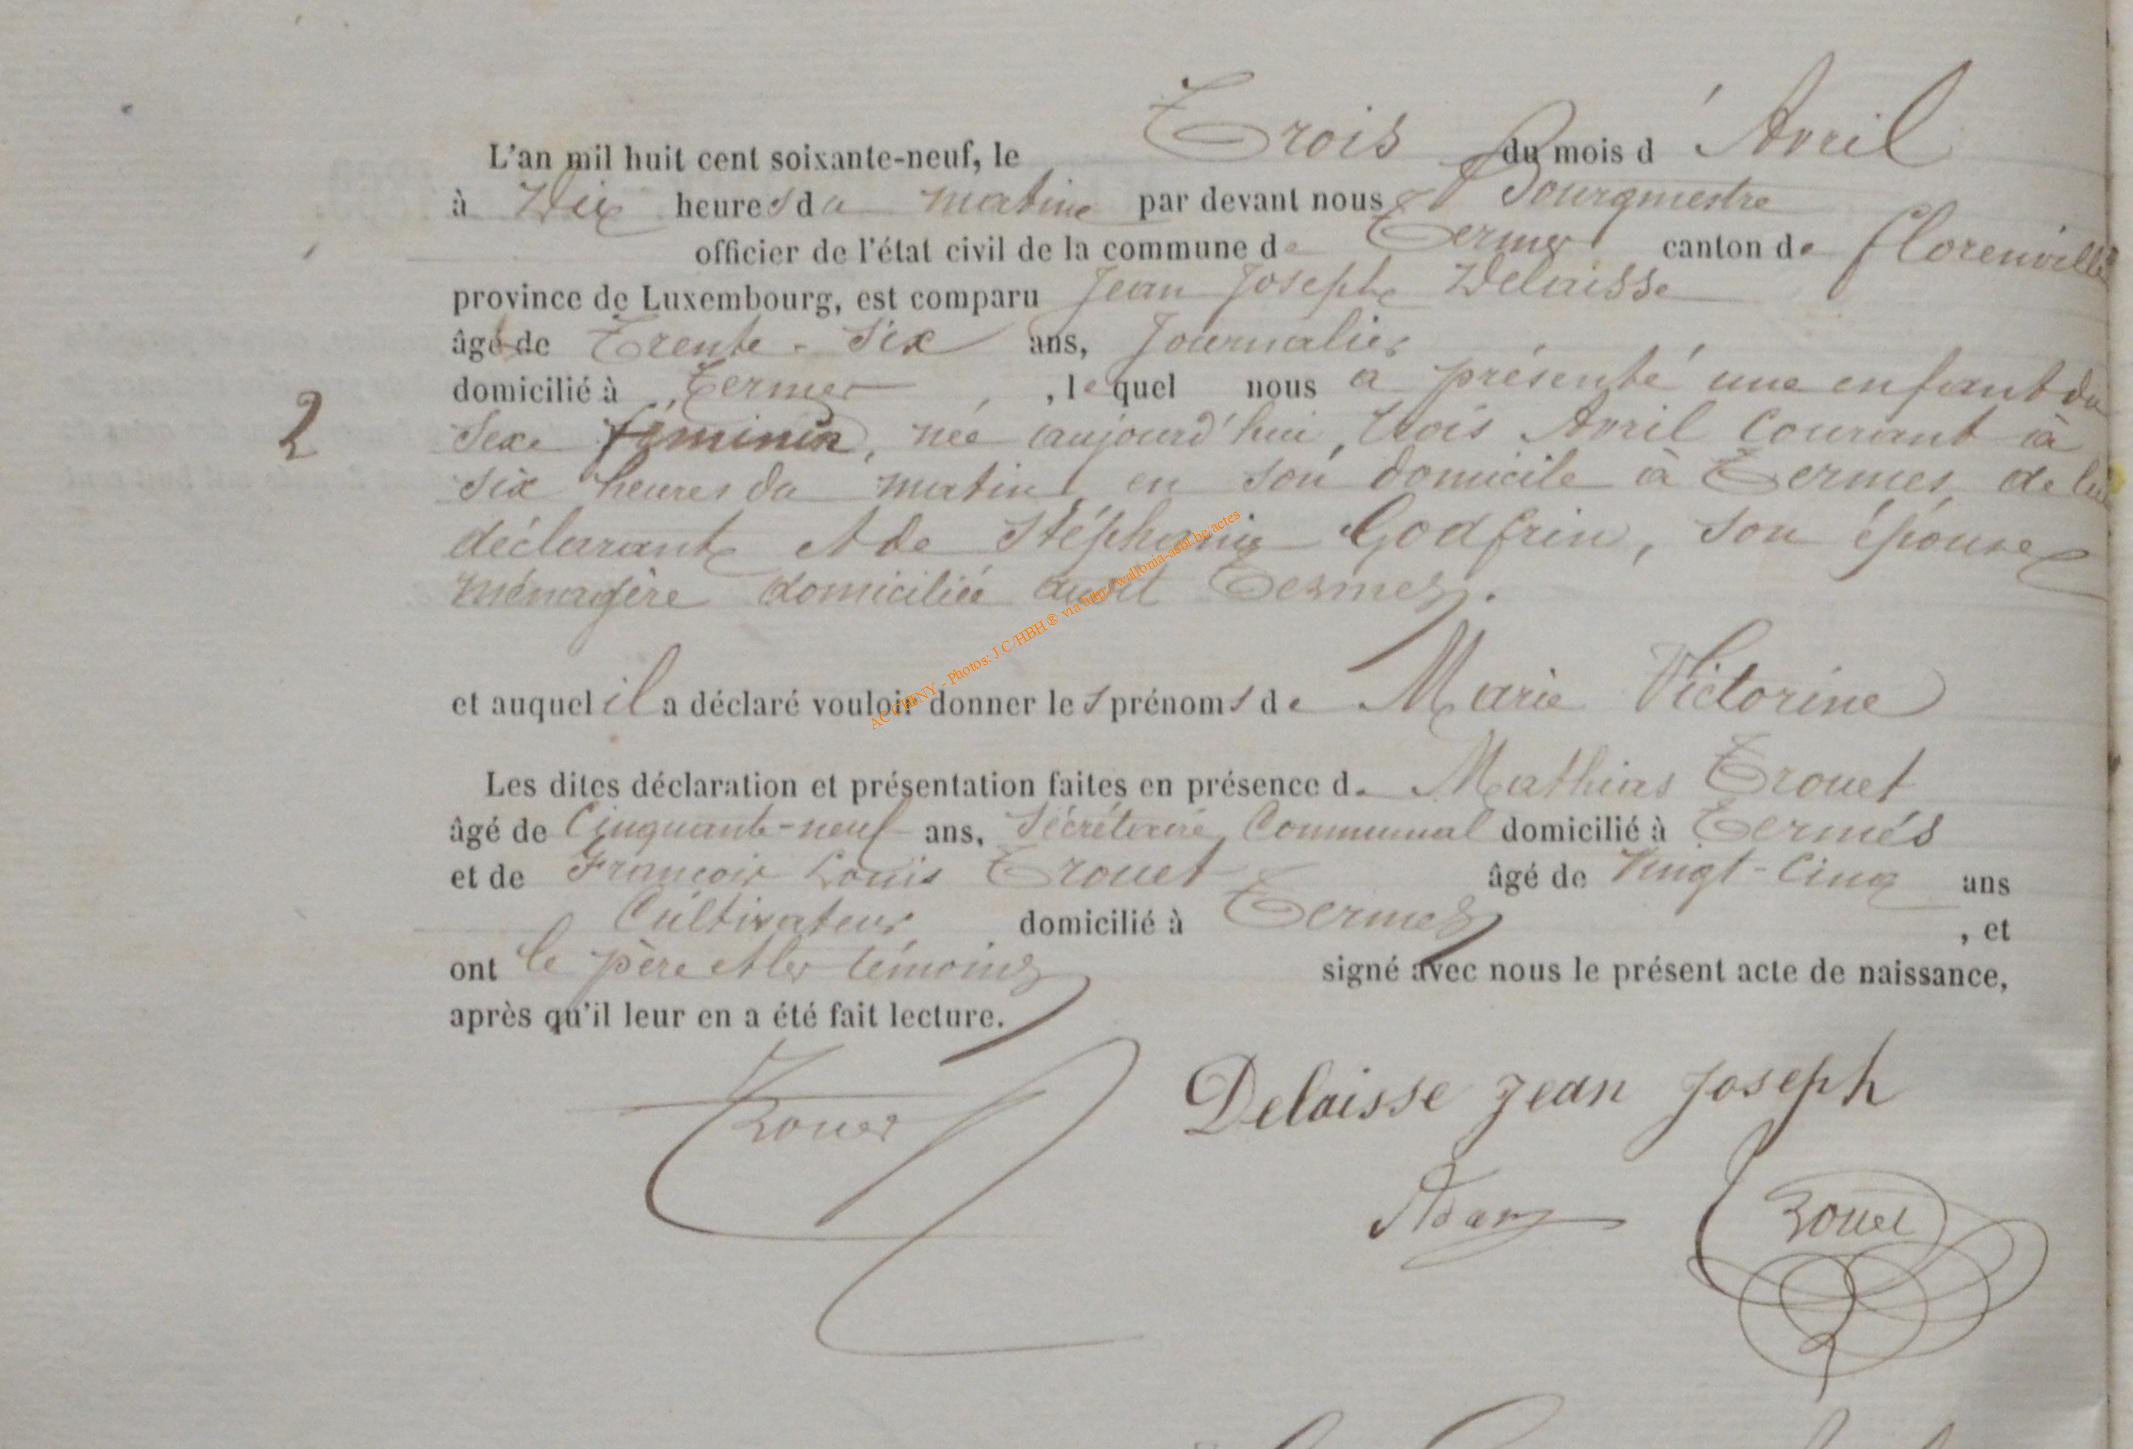 L'an mil huit cent soixante-neuf, le Trois du mois d'Avril
à Dix heures du matin par devant nous Bourgmestre
officier de l'état civil de la commune de Termes canton de Florenville
province de Luxembourg, est comparu Jean Joseph Delaisse
âgé de Trente-Six ans, Journalier
domicilié à Termes, lequel nous a présenté une enfant du
2 Sexe féminin, née aujourd'hui, trois Avril Courant à
six heures du matin, en son domicile à Termes, de lui
déclarant et de Stéphanie Godfrin, son épouse
ménagère domiciliée audit Termes.
AC CHINY - Photos: J.C/HBH ® via http://wallonia-asbl.be/actes
et auquel il a déclaré vouloir donner les prénoms de Marie Victorine
Les dites déclaration et présentation faites en présence de Mathias Trouet
âgé de Cinquante-neuf ans, Sécrétaire Communal domicilié à Termes
et de François Louis Trouet âgé de Vingt-Cinq ans
Cultivateur domicilié à Termes, et
ont le père et les témoins signé avec nous le présent acte de naissance,
après qu'il leur en a été fait lecture.
Trouet Delaisse Jean Joseph
Adam Trouet